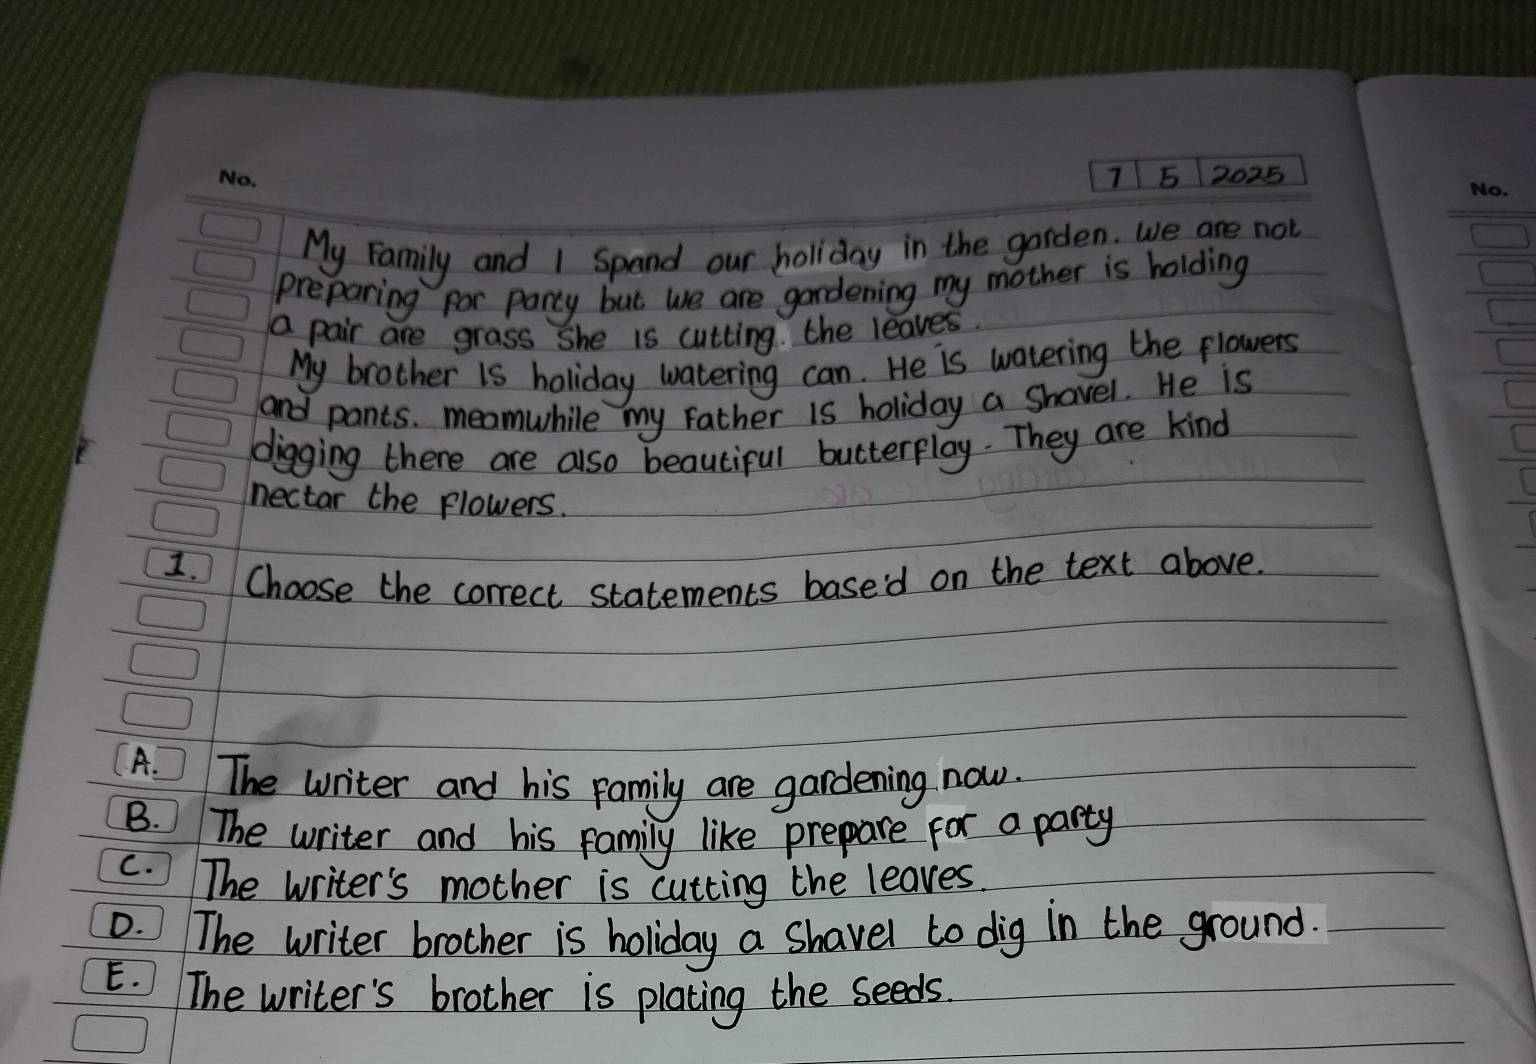 No.
7 5 2025
No.
My Family and I Spand our holiday in the garden. We are not
preparing for party but we are gardening my mother is holding
a pair are grass She is cutting. the leaves.
My brother is holiday watering can. He is watering the flowers
and pants. meamwhile my Father is holiday a Shavel. He is
digging there are also beautiful butterflay. They are kind
nectar the flowers.
1. Choose the correct statements base'd on the text above.
A. The writer and his family are gardening now.
B. The writer and his family like prepare for a party
C. The writer's mother is cutting the leaves.
D. The writer brother is holiday a Shavel to dig in the ground.
E. The writer's brother is plating the seeds.